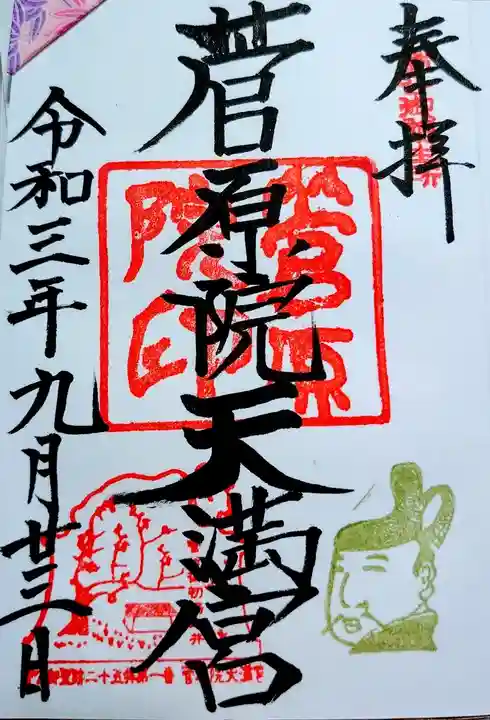 奉拝
菅原院天満宮
令和三年九月廿三日
菅原
院印
初
井
聖跡二十五拝第一番 菅原院天満宮